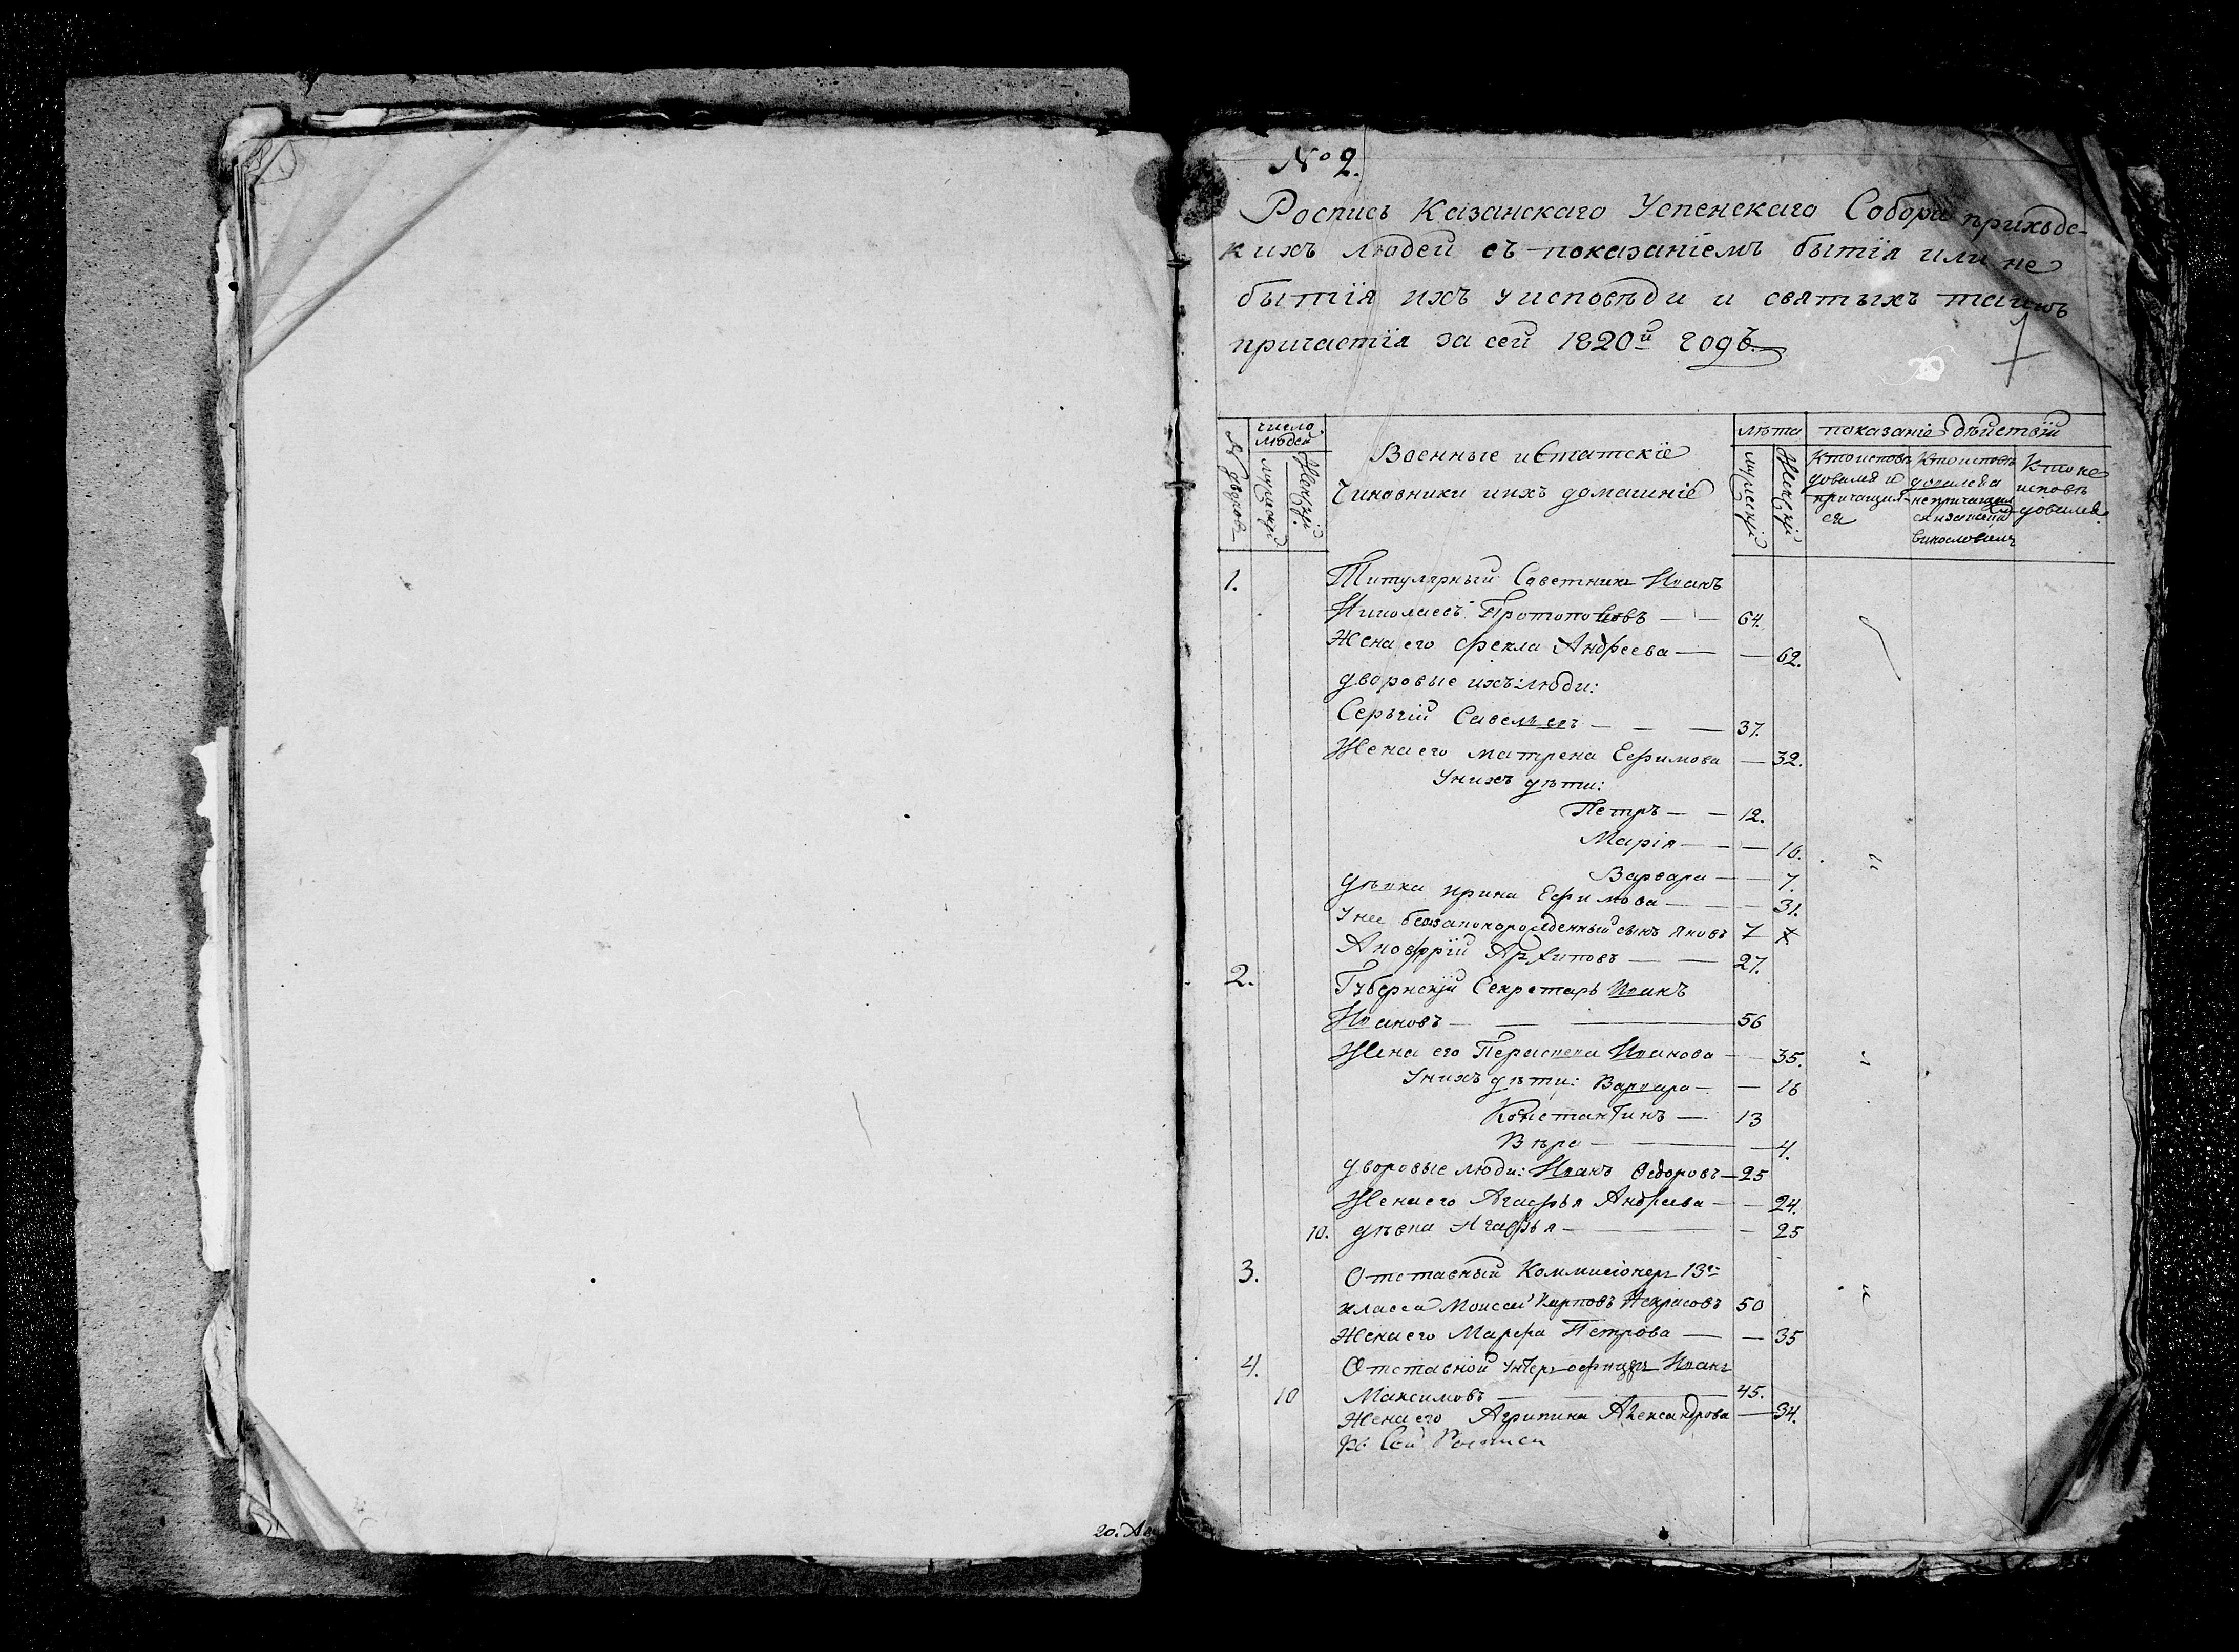 № 2.
Роспись Казанскаго Успенскаго Собора приходс-
кихъ людей съ показаніемъ бытія или не
бытія ихъ у исповѣди и святыхъ таинъ
причастія за сей 1820й годъ.
№ дворовъ
число людей
мужескій
Женскій
Военные и Статскіе
Чиновники и ихъ домашніе
лѣта
мужескій
Женскій
показаніе дѣйствій
Кто исповѣ
довался и
причащал
ся
Кто исповѣ
довался а
не причащал
ся и за какой
виною
Кто не
исповѣ
довался
1. Титулярный Советникъ Иванъ
Николаевъ Протопоповъ — — 64.
Жена его Фекла Андреева — — 62.
дворовые ихъ люди:
Сергій Савельевъ — — — 37.
Жена его матрена Ефимова — 32.
У нихъ дѣти:
Петръ — — 12.
Марія — — — 10.
Варвара — — 7.
дѣвка ирина Ефимова — — — 31.
У нее беззаконорожденный сынъ Яковъ 7
Аноффрій Архиповъ — — 27.
2. Губернскій Секретарь Иванъ
Ивановъ — — — 56
Жена его Пераскева Иванова — 35.
У нихъ дѣти: Варвара — — 16
Констактинъ — 13
Вѣра — — — 4.
дворовые люди: Иванъ Ѳедоровъ — 25
Жена его Агафья Андреева — — 24.
10. дѣвка Агафья — — 25
3. Отставный Коммисіонеръ 13го
класса Моисей Карповъ Некрасовъ 50
Жена его Марфа Петрова — — 35
4. Отставной унтеръ офицеръ Иванъ
10 Максимовъ — — 45.
Жена его Агрипина Александрова — 34.
Къ Сей Росписи
20.